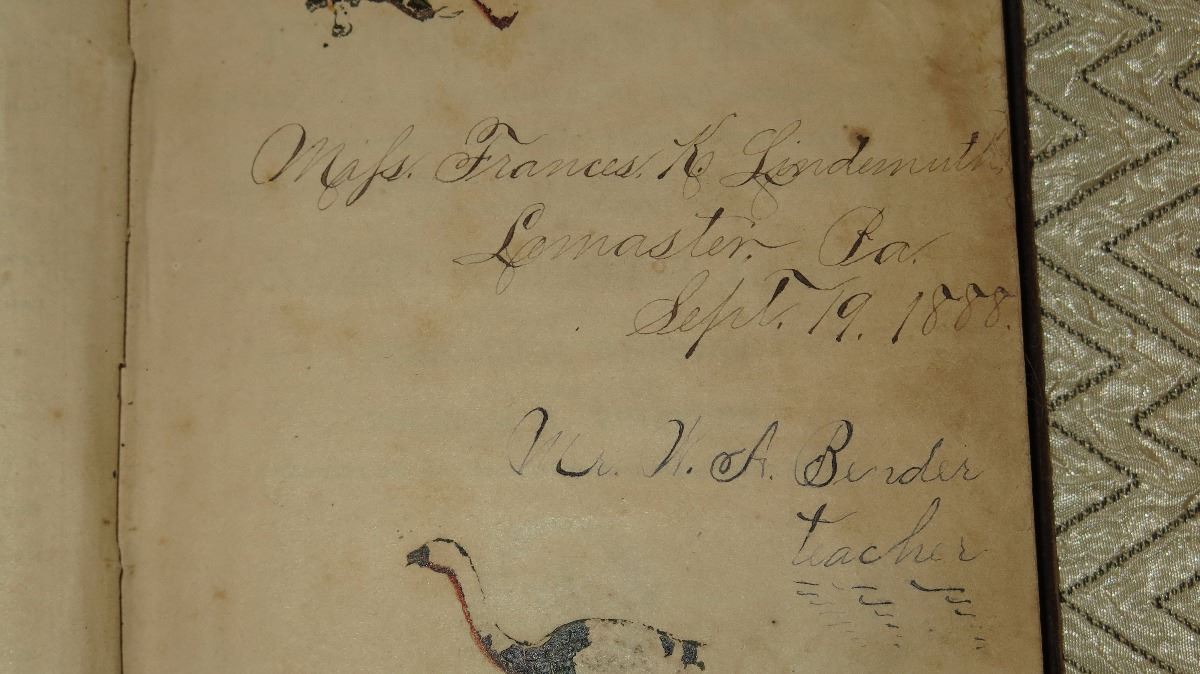 Miss. Frances. K. Lindemuth.
Lemaster. Pa.
Sept. 19. 1888.
Mr. W. A. Bender
teacher